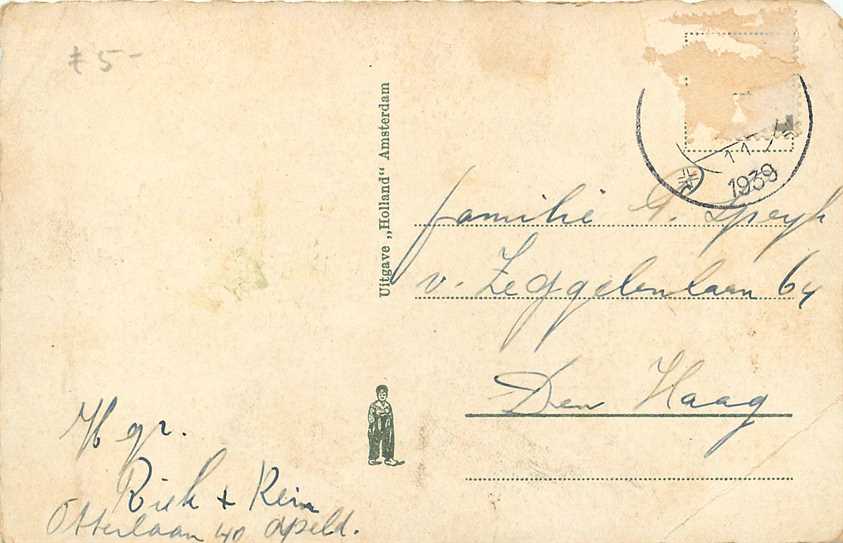 £ 5-
Uitgave „Holland" Amsterdam
11
1939
familie G. Speyk
v. Zeggelenlaan 64
Den Haag
H gr.
Riek + Rein
Otterlaan 40 Apeld.